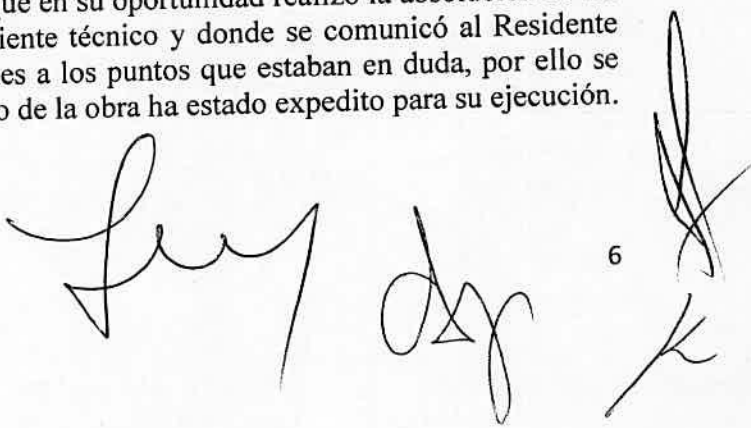 ue en su oportunidad realizó la
iente técnico y donde se comunicó al Residente
es a los puntos que estaban en duda, por ello se
o de la obra ha estado expedito para su ejecución.
6